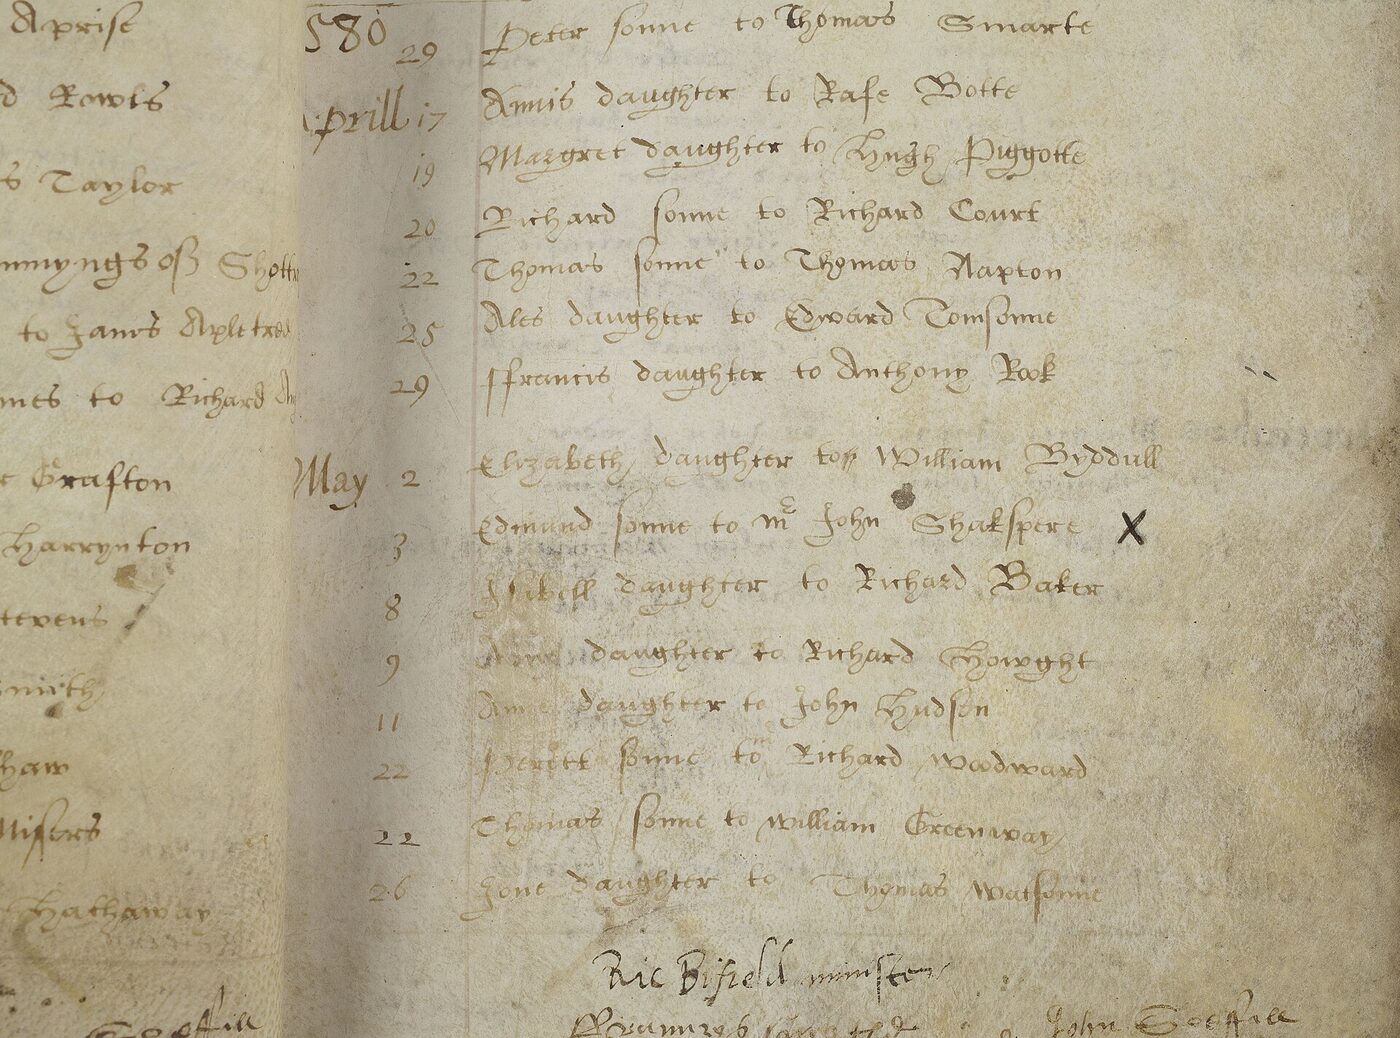 Aprise
d Rowls
s Taylor
mmyngs of Shott
to James Apletree
mes to Richard
Grafton
Harrynton
tevens
smith
haw
Hathaway
580 29 Peter sonne to Thomas Smarte
Aprill 17 Annis daughter to Rafe Botte
19 Margret daughter to Hugh Piggotte
20 Richard sonne to Richard Court
22 Thomas sonne to Thomas Napton
25 Ales daughter to Edward Tomsonne
29 ffrancis daughter to Anthony Rook
May 2 Elizabeth daughter to William Byddull
3 Edmund sonne to mr John Shakspere X
8 Issabell daughter to Richard Baker
9 daughter to Richard Howght
11 Anne daughter to John Hudson
22 sonne to Richard woodward
22 Thomas sonne to william Greenway
26 Jone daughter to Thomas watsonne
Ric Bifield minister
John